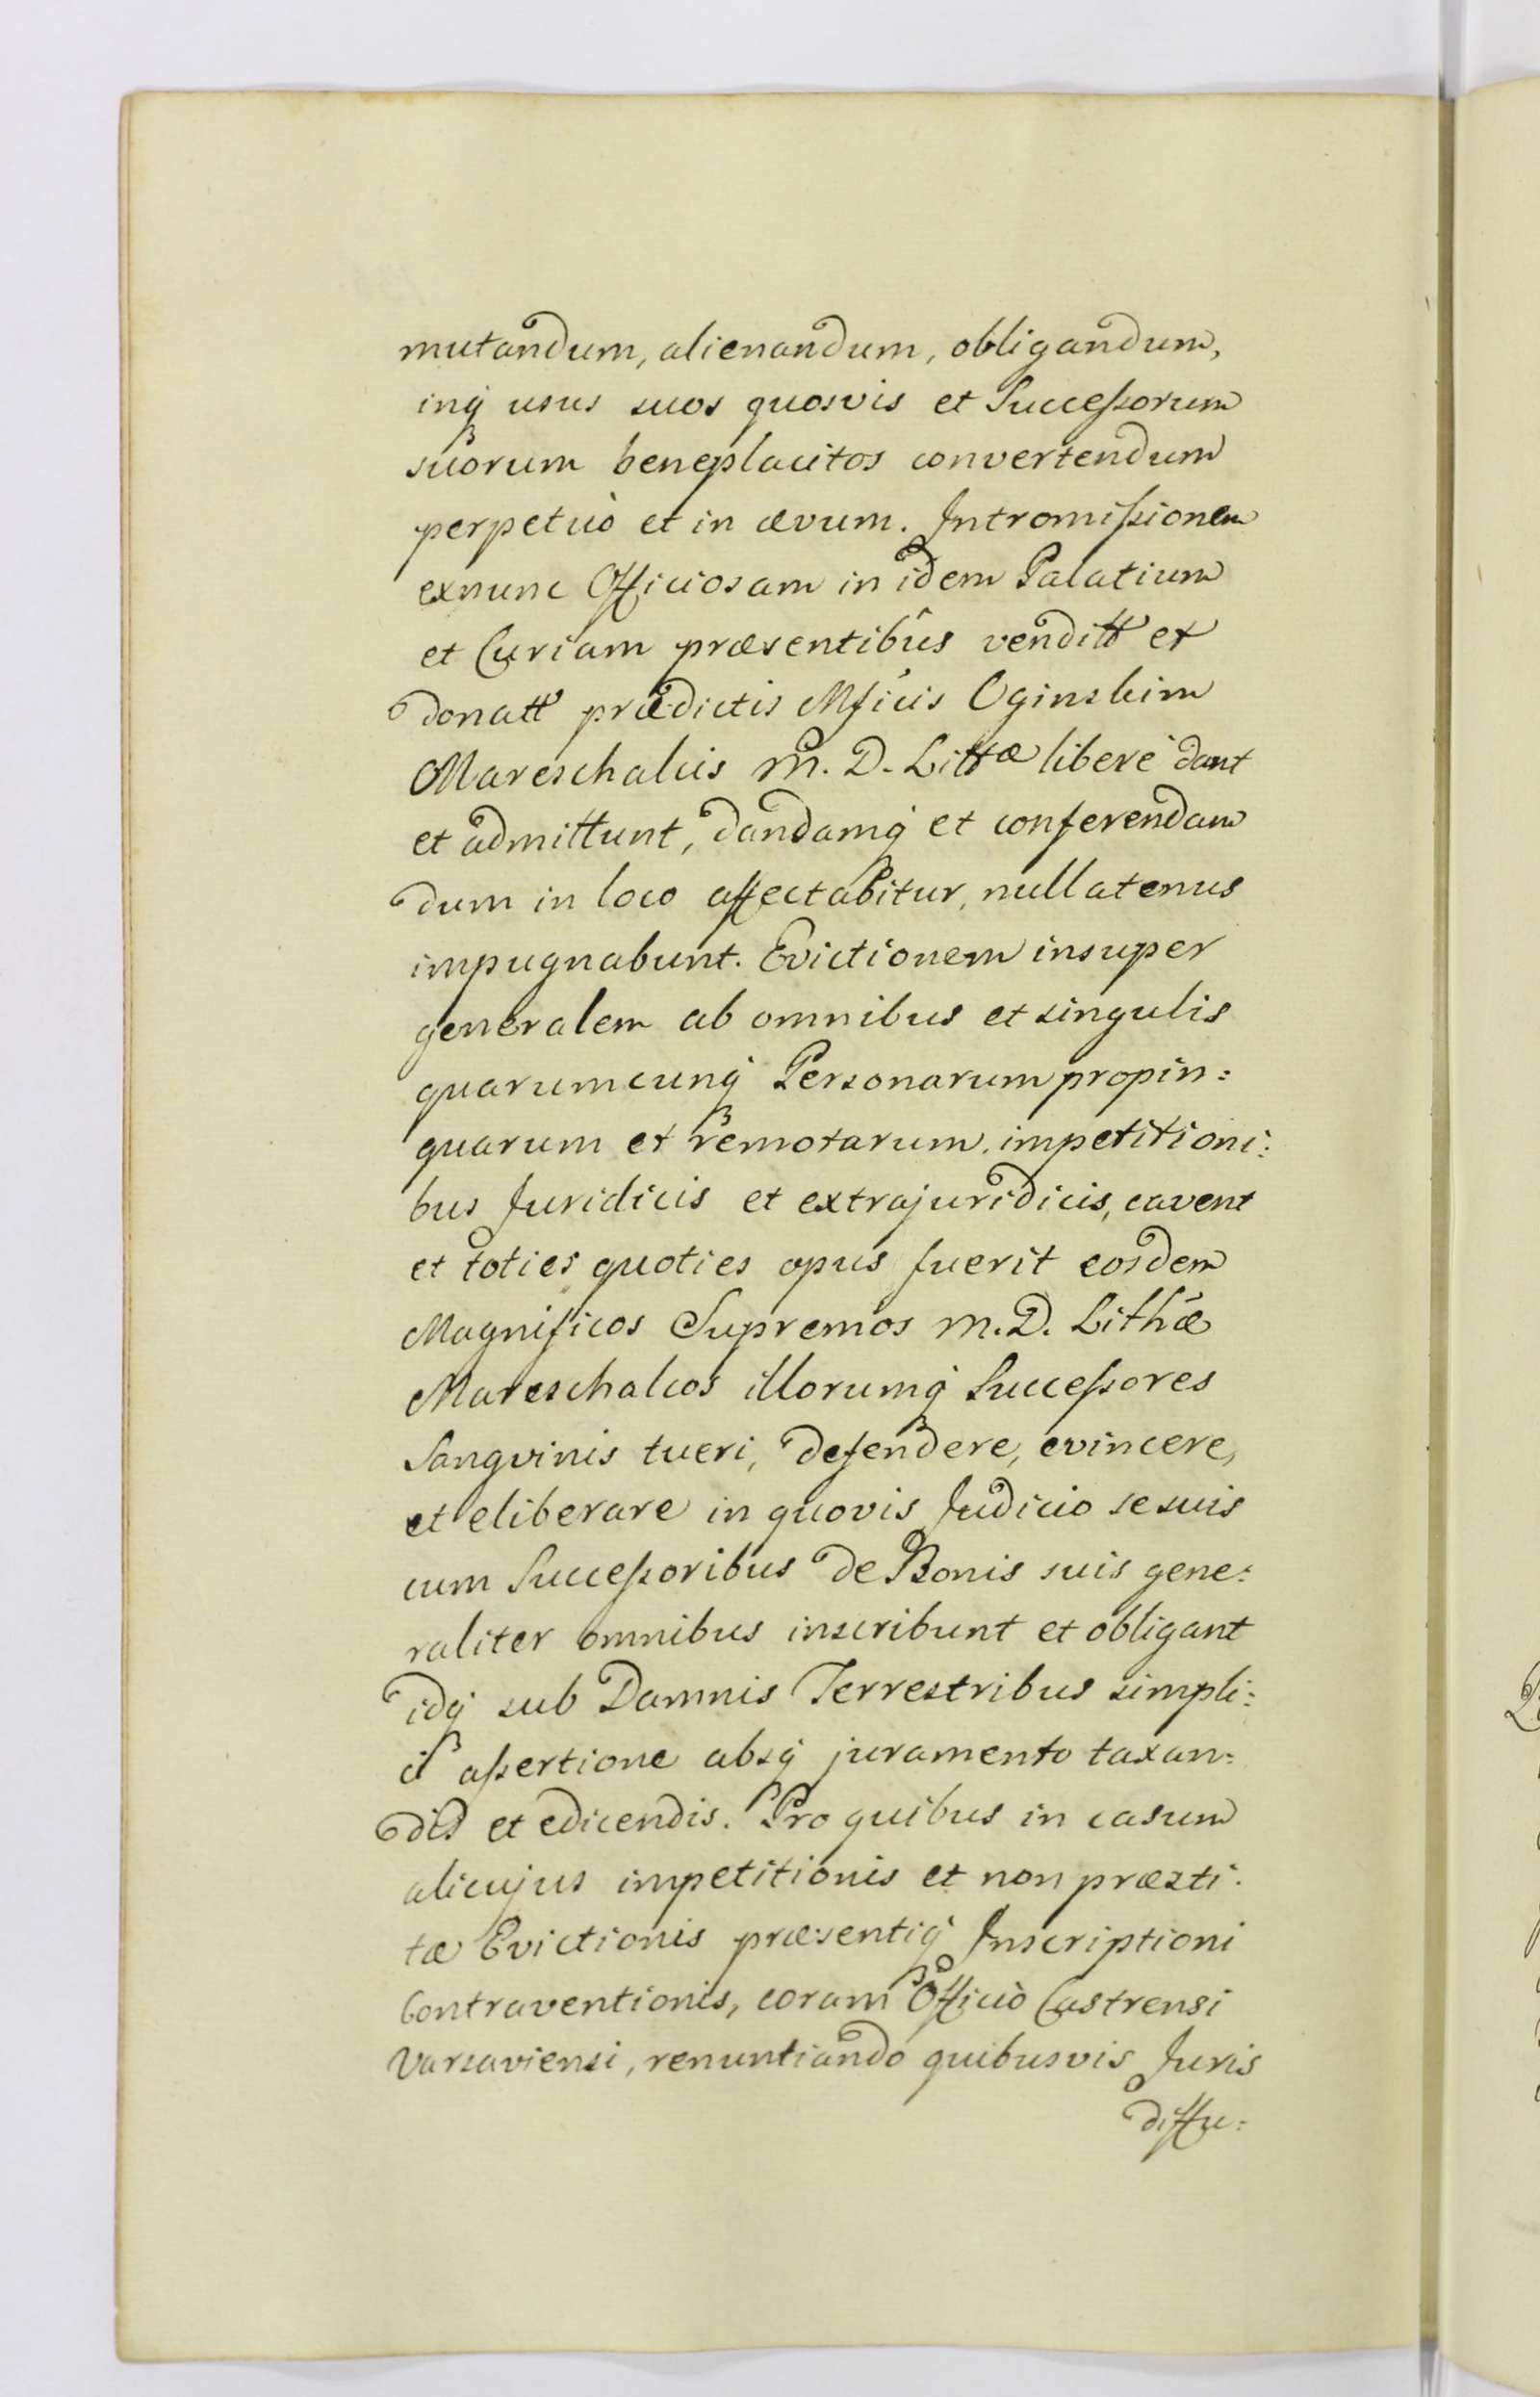 mutandum, alienandum, obligandum,
inq́ usus suos quosvis et Succeſsorum
suorum beneplacitos convertendum
perpetuò et in ævum. Intromiſsionem
exnunc Officiosam in idem Palatium
et Curiam præsentibus venditt et
donatt prædictis Mficis Oginskim
Mareschalcis M. D. Littæ liberè dant
et admittunt, dandamq́ et conferendam
dum in loco affectabitur, nullatenus
impugnabunt. Evictionem insuper
generalem ab omnibus et singulis
quarumcunq́ Personarum propin:
quarum et remotarum impetitioni:
bus Juridicis et extrajuridicis, cavent
et toties quoties opus fuerit eosdem
Magnificos Supremos M. D. Lithæ
Mareschalcos illorumq́ Succeſsores
Sangvinis tueri, defendere, evincere,
et eliberare in quovis Judicio se suis
cum Succeſsoribus de Bonis suis gene:
raliter omnibus inscribunt et obligant
idq́ sub Damnis Terrestribus simpli:
ci aſsertione absq́ juramento taxan:
dis et edicendis. Pro quibus in casum
alicujus impetitionis et non præsti:
tæ Evictionis præsentiq́ Inscriptioni
Contraventionis, coram Officiò Castrensi
Varsaviensi, renuntiando quibusvis Juris
diffu: